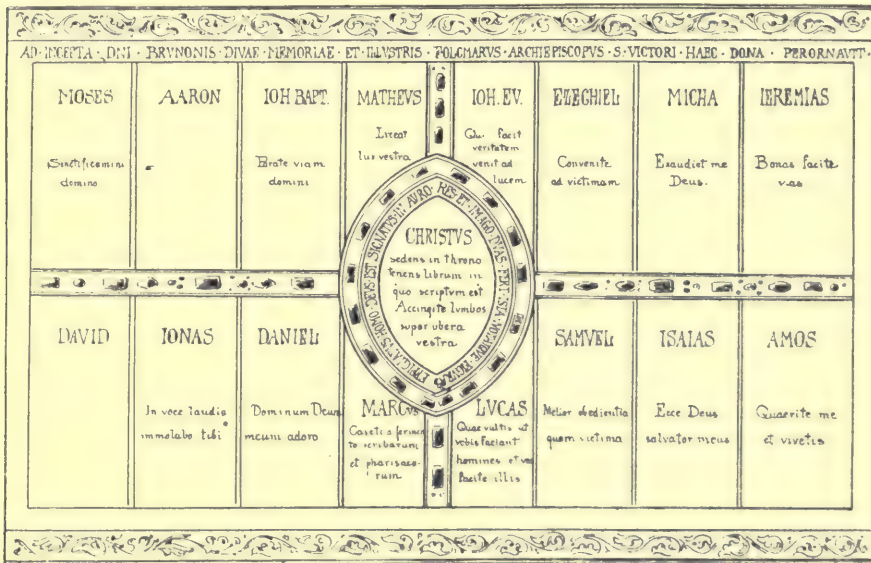 AD · INCEPTA · DNI · BRVNONIS · DIVAE · MEMORIAE · ET · ILLVSTRIS · FOLCMARVS · ARCHIEPISCOPVS · S · VICTORI · HAEC · DONA · PERORNAVIT ·
MOSES
Sanctificamini
domino
AARON
IOH BAPT.
Parate viam
domini
MATHEVS
Luceat
lux vestra
IOH. EV.
Qui facit
veritatem
venit ad
lucem
EZECHIEL
Convenite
ad victimam
MICHA
Exaudiet me
Deus.
IEREMIAS
Bonas facite
vias
EFFIGIATVS HOMO DEVS EST SIGNATVS IN AVRO · RES · ET · IMAGO DVAS FERT ISTA
CHRISTVS
sedens in throno
tenens librum in
quo scriptvm est
Accingite lvmbos
super ubera
vestra
DAVID
IONAS
In voce laudis
immolabo tibi
DANIEL
Dominum Deum
meum adoro
MARCVS
Cavete a fermen
to scribarum
et pharisaeo-
rum
LVCAS
Quae vultis ut
vobis faciant
homines et vos
facite illis
SAMVEL
Melior obedientia
quam victima
ISAIAS
Ecce Deus
salvator meus
AMOS
Quaerite me
et vivetis